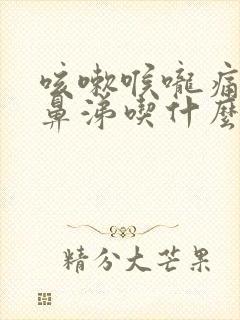 咳嗽喉嚨痛
鼻涕喫什麼
精分大芒果